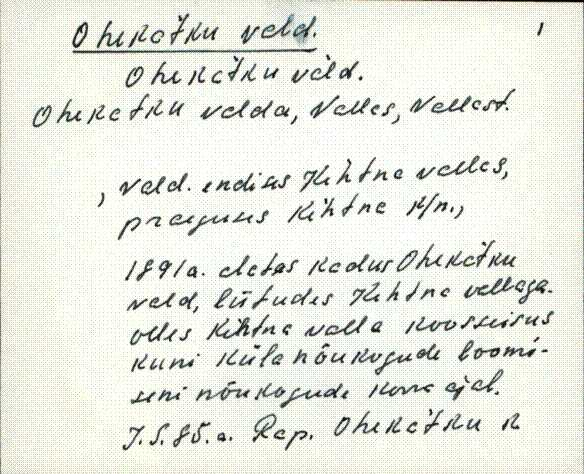 Ohekatku vald. 1
Ohekatku vald.
Ohekatku valda, vallas, vallast.
, vald. endises Kehtna vallas,
praeguses Kehtna k/n.,
1891 a. alates kadus Ohekatku
vald, liitudes Kehtna vallaga.
olles Kehtna valla koosseisus
kuni küla nõukogude loomi-
seni nõukogude korra ajal.
J.S.85.a. Rap. Ohekatku k